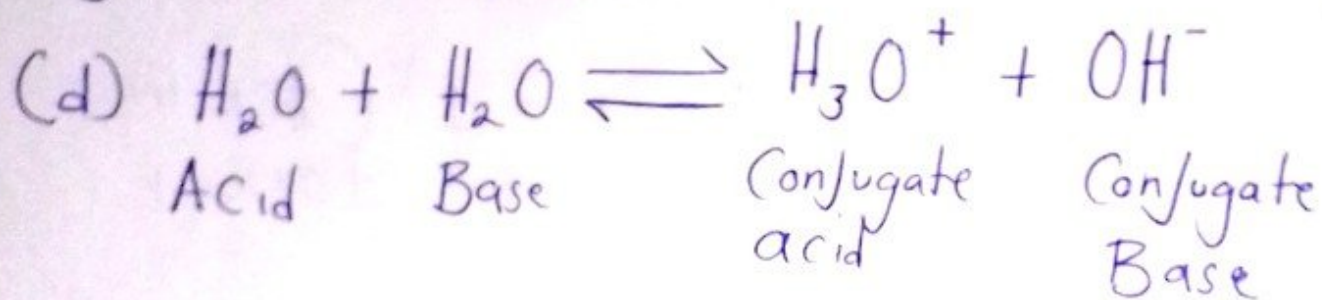 (d) H₂O + H₂O ⇌ H₃O⁺ + OH⁻
Acid Base Conjugate acid Conjugate Base